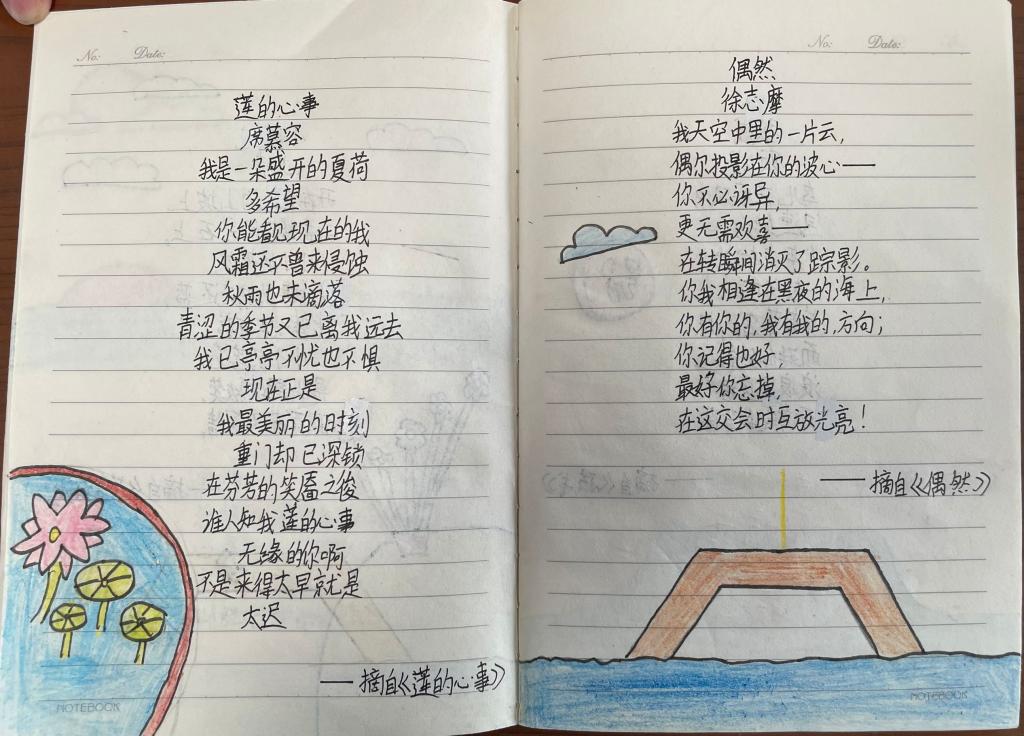 No: Date:
莲的心事
席慕容
我是一朵盛开的夏荷
多希望
你能看见现在的我
风霜还不曾来侵蚀
秋雨也未滴落
青涩的季节又已离我远去
我已亭亭不忧也不惧
现在正是
我最美丽的时刻
重门却已深锁
在芬芳的笑靥之後
谁人知我莲的心事
无缘的你啊
不是来得太早就是
太迟
——摘自《莲的心事》
NOTEBOOK
No: Date:
偶然
徐志摩
我天空中里的一片云,
偶尔投影在你的波心——
你不必讶异,
更无需欢喜——
在转瞬间消灭了踪影。
你我相逢在黑夜的海上,
你有你的,我有我的,方向;
你记得也好,
最好你忘掉,
在这交会时互放光亮!
——摘自《偶然》
NOTEBOOK